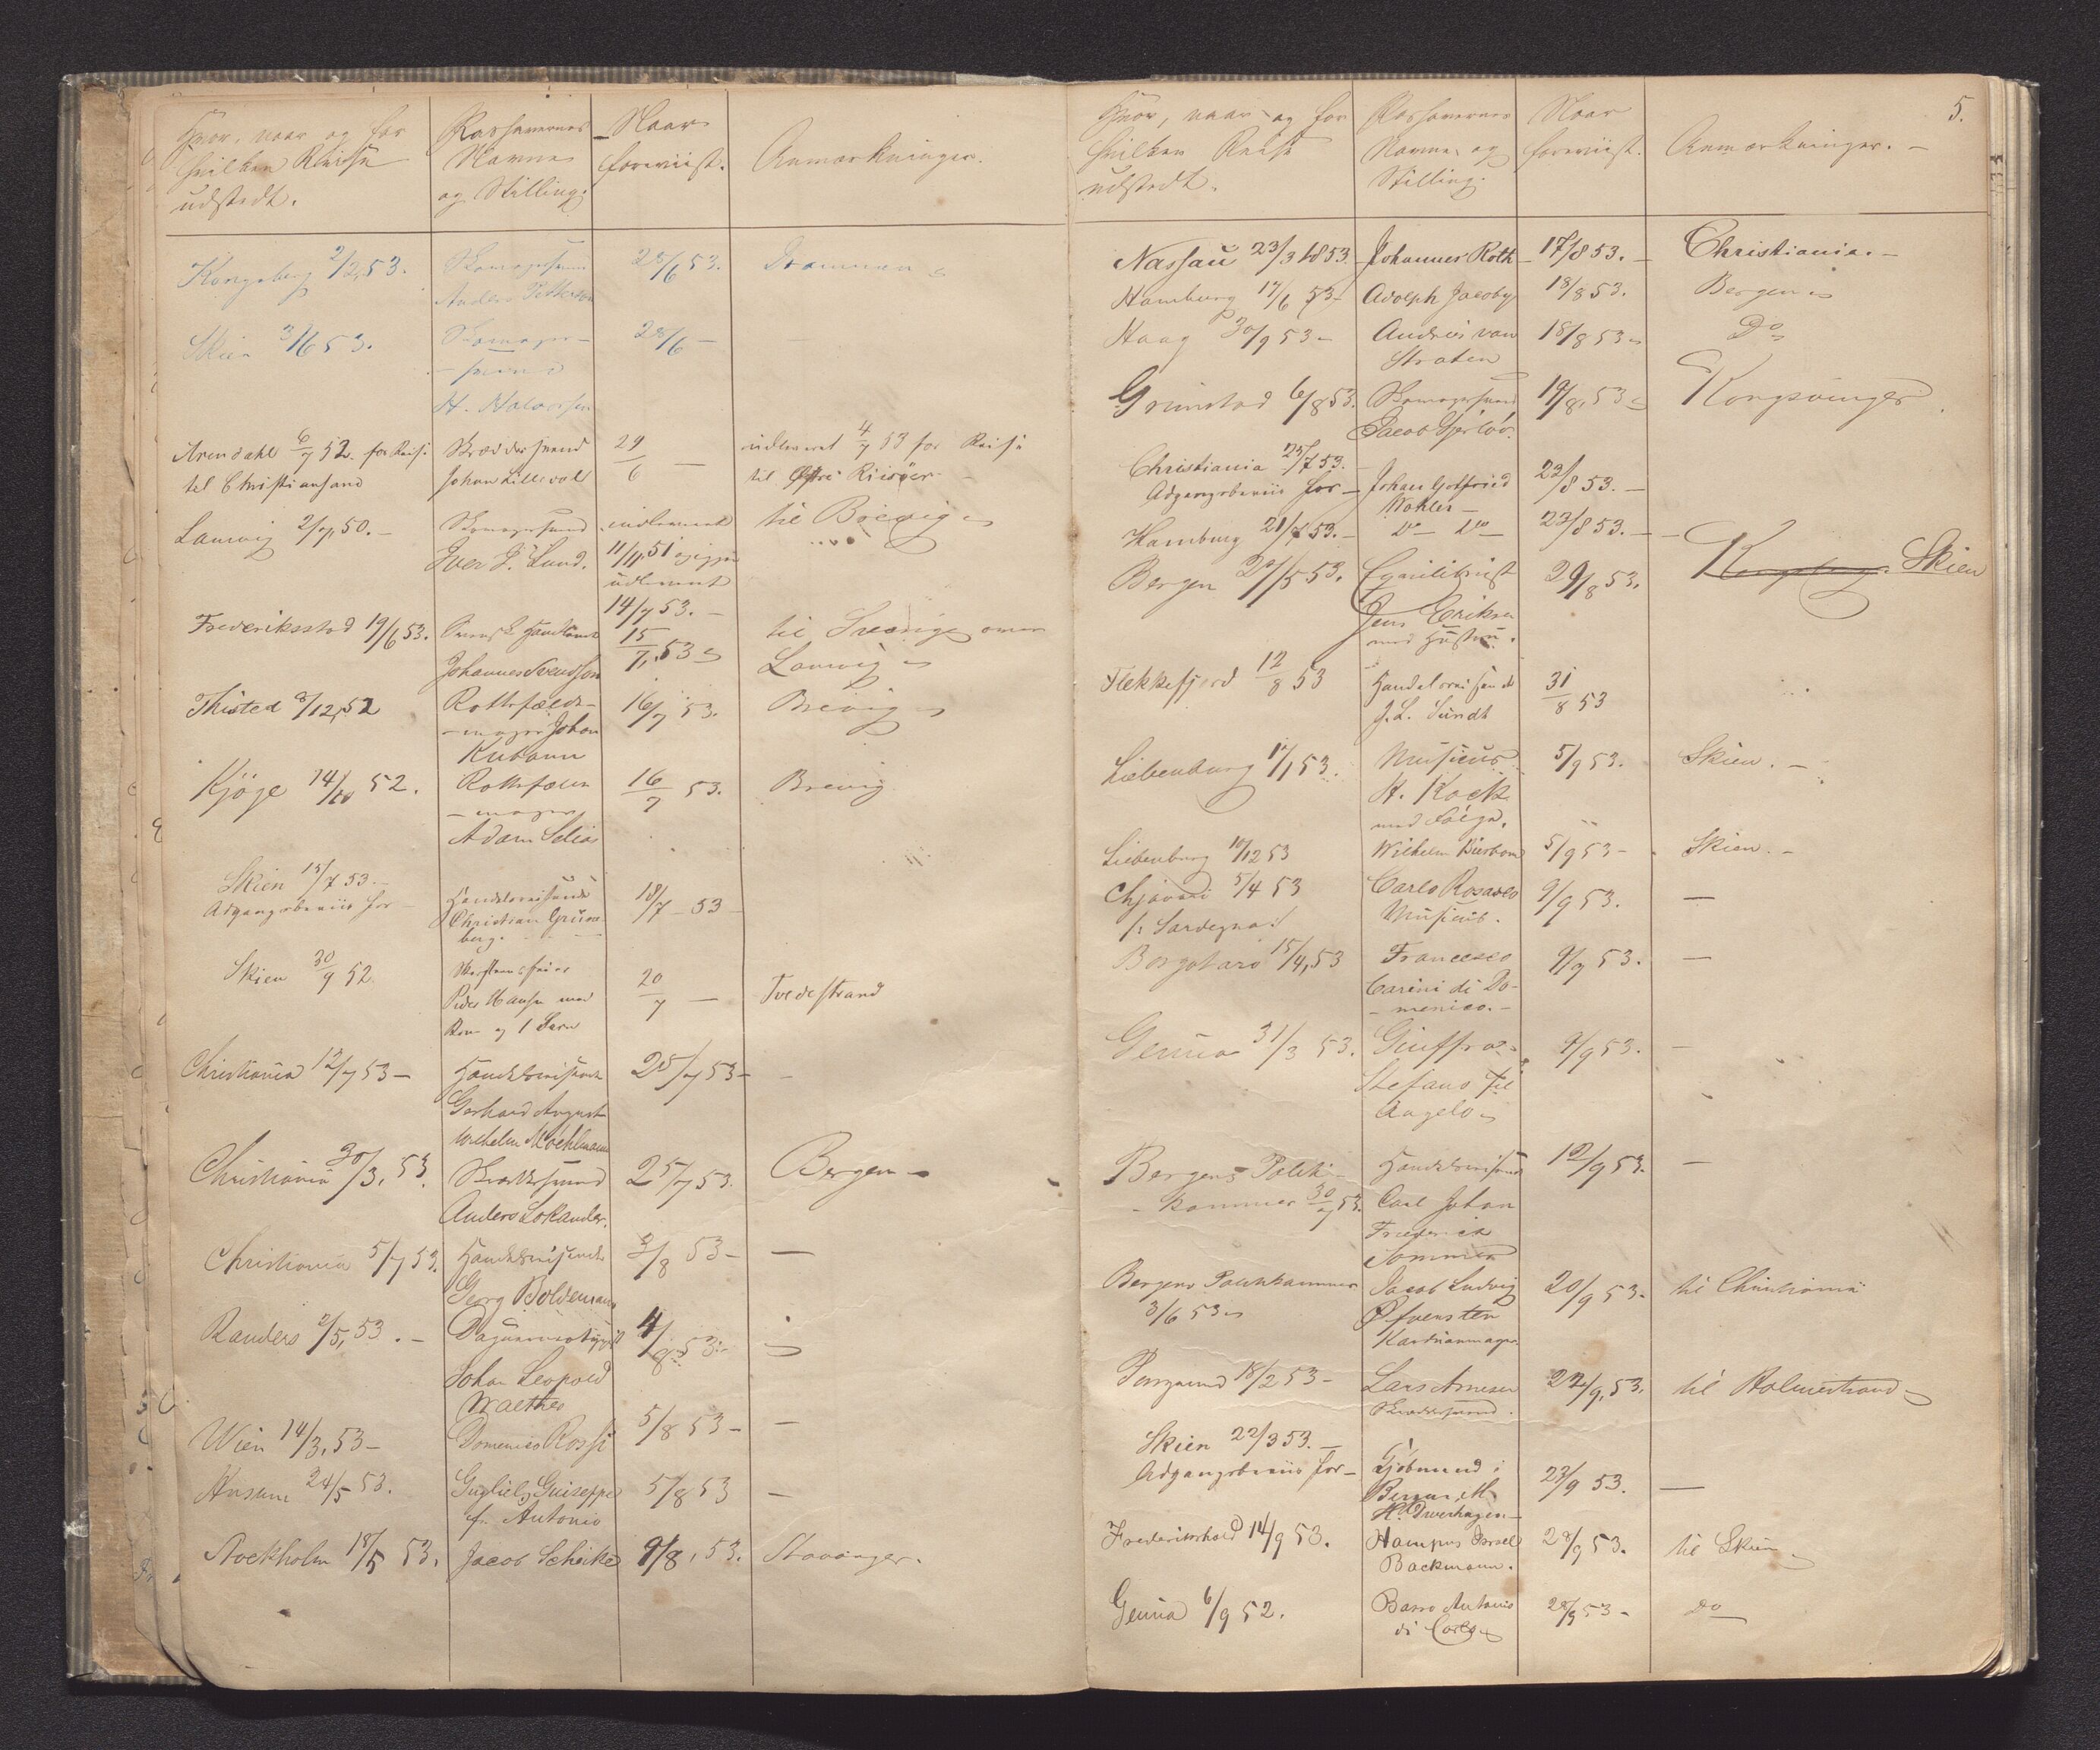 Hvor, naar og for
hvilken Reise
udstedt.
Passhavernes
Navne
og Stilling.
Naar
foreviist.
Anmærkninger.
Kongsberg 2/2 53.
Skomagersvend
Anders Petterson
28/6 53.
Drammen
Skien 3/6 53.
Skomager-
svend
H. Halvorsen
28/6 —
Arendahl 6/7 52. for Reise
til Christiansand
Skrædersvend
Johan Lillevold
29/6 —
udleveret 4/7 53 for Reise
til Østre Riisøer
Laurvig 2/7, 50. —
Skomagersvend
Iver J. Lund.
indleveret
11/11, 51 og igjen
udleveret
14/7 53. —
til Brevig
Frederiksstad 19/6 53.
Svensk Handlende
Johannes Svendsson
15/7, 53
til Sverige over
Laurvig
Thisted 8/12, 52
Rottefælde-
-mager Johan
Kubann
16/7 53.
Brevig
Kjöge 14/10 52.
Rottefælde
-mager
Adam Selias
16/7 53.
Brevig
Skien 15/7 53 —
Adgangsbeviis for —
Handelsreisende
Christian Grüne-
berg.
18/7 - 53 -
Skien 30/9 52
Peder Hansen med
Kone og 1 Barn
20/7 —
Tvedestrand
Christiania 12/7 53 —
Handelsreisende
Gerhard August
Wilhelm Moehlmann
25/7 53 —
—
Christiania 30/3, 53.
Skrædersvend
Anders Lokander.
25/7 53.
Bergen —
Christiania 5/7 53.
Handelsreisende
Georg Boldemann
3/8 53 —
—
Randers 2/5, 53. —
Daguerreotypist
Johan Leopold
Walther
4/8 53. —
Wien 14/3, 53 —
Domenico Rossi
5/8 53 —
—
Husum 24/5 53.
Gugliel, Guiseppe
f. Antonio
5/8 53
—
Stockholm 18/5 53.
Jacob Scheike
9/8, 53.
Stavanger.
5.
Hvor, naar og for
hvilken Reise
udstedt.
Passhavernes
Navne og
Stilling.
Naar
foreviist.
Anmærkninger. —
Nassau 23/3 1853.
Johannes Roth —
17/8 53. —
Christiania. —
Hamburg 17/6 53 —
Adolph Jacoby
18/8 53.
Bergen
Haag 30/9 53 —
Andries van
Straten
18/8 53
Do
Grimstad 6/8 53.
Skomagersvend
Jacob Gjerløv.
19/8, 53
Kongsvinger
Christiania 25/7 53.
Adgangsbeviis for —
Johan Gotfried
Wohler —
22/8 53. —
Hamburg 21/7 53. —
Do — Do —
23/8 53. —
Bergen 20/5 53.
Eqvilibrist
Jens Eriksen
med Hustru.
29/8 53.
Kongsberg. Skien
Flekkefjord 12/8 53
Handelsreisende
J. L. Sundt
31/8 53
Liebenburg 17/1 53.
Musicus
H. Kock
med Følge.
5/9 53.
Skien. —
Liebenburg 10/12 53
Wilhelm Bürbom
5/9 53 —
Skien. —
Chjavari 5/4 53
/: Sardegna :/
Carlo Rosasco
Musicus.
9/9 53.
—
Borgotaro 15/4, 53
Francesco
Carini di Do-
-menico. —
9/9 53.
—
Genua 31/3 53.
Giuffra
Stefano fil
Angelo
9/9 53.
—
Bergens Politi-
-kammer 30/7 53.
Handelsreisende
Carl Johan
Frederik
Sommer
12/9 53.
—
Bergens Politikammer
3/6 53
Jacob Ludvig
Øfversten
Karduanmager
20/9 53.
til Christiania
Porsgrund 18/2 53 —
Lars Arnesen
Skrædersvend.
22/9, 53.
til Holmestrand
Skien 22/3 53. —
Adgangsbeviis for —
Kjøbmand i
23/9 53.
—
Frederikshald 14/9 53.
Hampus Israel
Backmann.
28/9 53.
til Skien
Genua 6/9 52.
Basso Antonio
di Carlo
28/9 53 —
Do